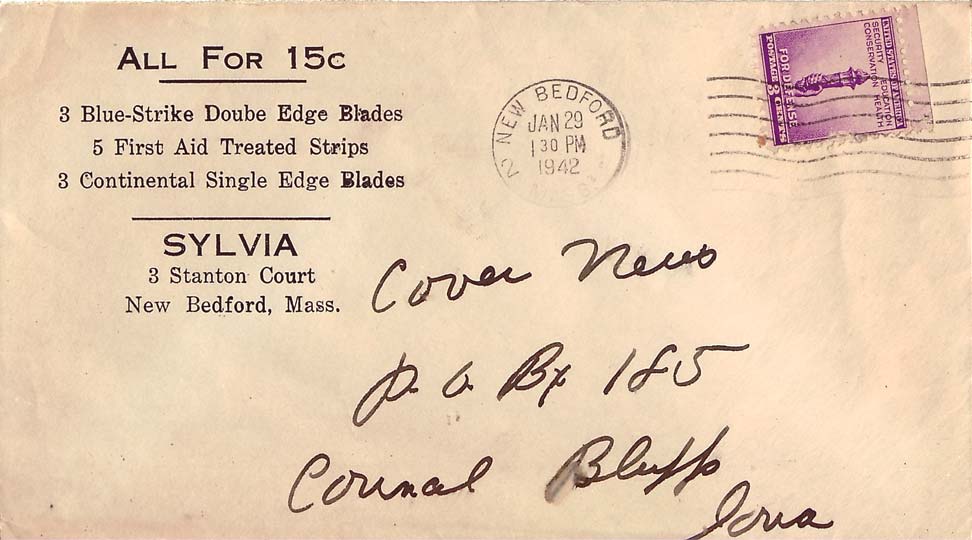 ALL FOR 15c
3 Blue-Strike Doube Edge Blades
5 First Aid Treated Strips
3 Continental Single Edge Blades
SYLVIA
3 Stanton Court
New Bedford, Mass.
NEW BEDFORD
JAN 29
1 30 PM
1942
2
UNITED STATES OF AMERICA
SECURITY EDUCATION
CONSERVATION HEALTH
FOR DEFENSE
POSTAGE 3 CENTS
Cover News
P. O. Bx 185
Counal Bluffs
Iowa